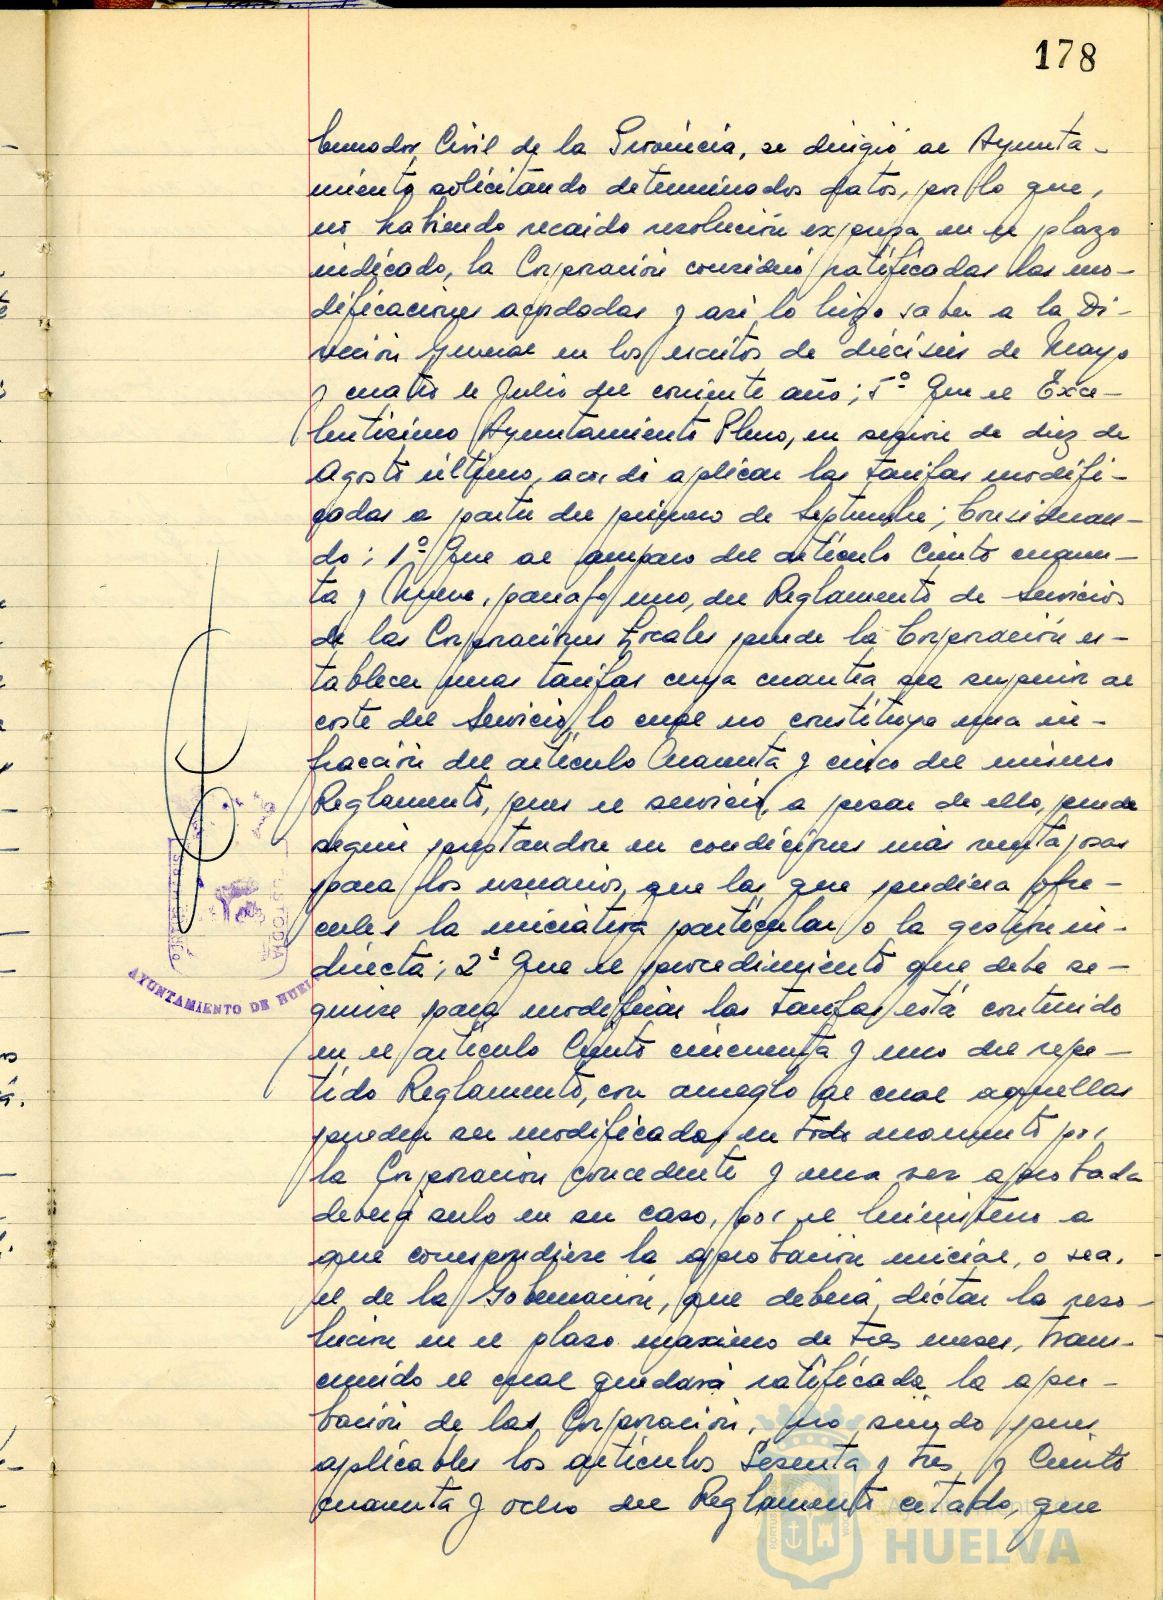 178
bernador Civil de la Provincia, se dirigió al Ayunta-
miento solicitando determinados datos, por lo que,
no habiendo recaido resolución expresa en el plazo
indicado, la Corporación consideró ratificadas las mo-
dificaciones acordadas y asi lo hizo saber a la Di-
rección General en los escritos de dieciseis de Mayo
y cuatro de Julio del corriente año; 5º Que el Exce-
lentísimo Ayuntamiento Pleno, en sesión de diez de
Agosto último, acordó aplicar las tarifas modifi-
cadas a partir del primero de Septiembre; Consideran-
do: 1º Que al amparo del artículo Ciento cuaren-
ta y Nueve, párrafo uno, del Reglamento de Servicios
de las Corporaciones Locales puede la Corporación es-
tablecer unas tarifas cuya cuantía sea superior al
coste del Servicio, lo cual no constituye una in-
fracción del artículo Cuarenta y cinco del mismo
Reglamento, pues el servicio, a pesar de ello, puede
seguir prestandose en condiciones más ventajosas
para los usuarios, que las que pudiera ofre-
cerles la iniciativa particular o la gestión in-
directa; 2º Que el procedimiento que debe se-
guirse para modificar las tarifas está contenido
en el artículo Ciento cincuenta y uno del repe-
tido Reglamento, con arreglo al cual aquellas
pueden ser modificadas en todo momento por
la Corporación concedente y una vez aprobada
deverá serlo en su caso, por el Ministerio a
que correspondiese la aprobación inicial, o sea,
el de la Gobernación, que deberá dictar la reso-
lución en el plazo máximo de tres meses, trans-
currido el cual quedará ratificada la apro-
bación de las Corporación, no siendo pues
aplicables los artículos Sesenta y tres y Ciento
cuarenta y ocho del Reglamento citado, que
AYUNTAMIENTO DE HUELVA
CUSTODIA
Ayuntamiento de
HUELVA